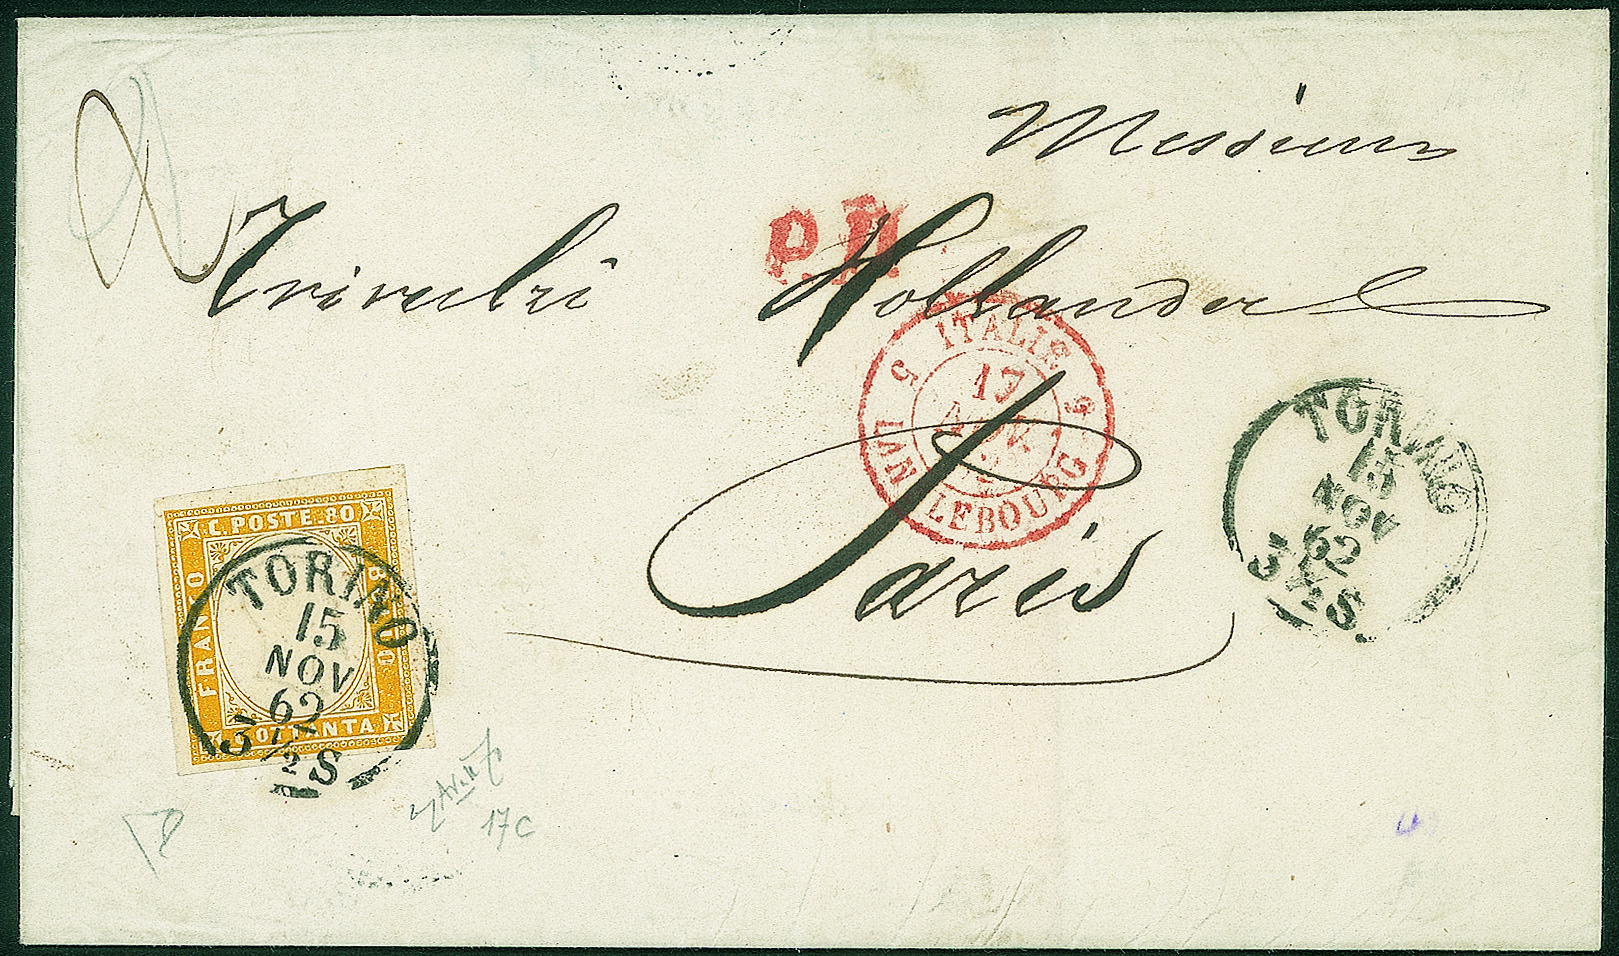 Messieurs
Trivulzi Hollander
Paris
P.D.
5 ITALIE 5
17
NOV.
LANSLEBOURG
TORINO
15
NOV
62
3 1/2 S.
C. POSTE. 80
FRANCO
BOLLO
C. OTTANTA
TORINO
15
NOV
62
3 1/2 S
17c